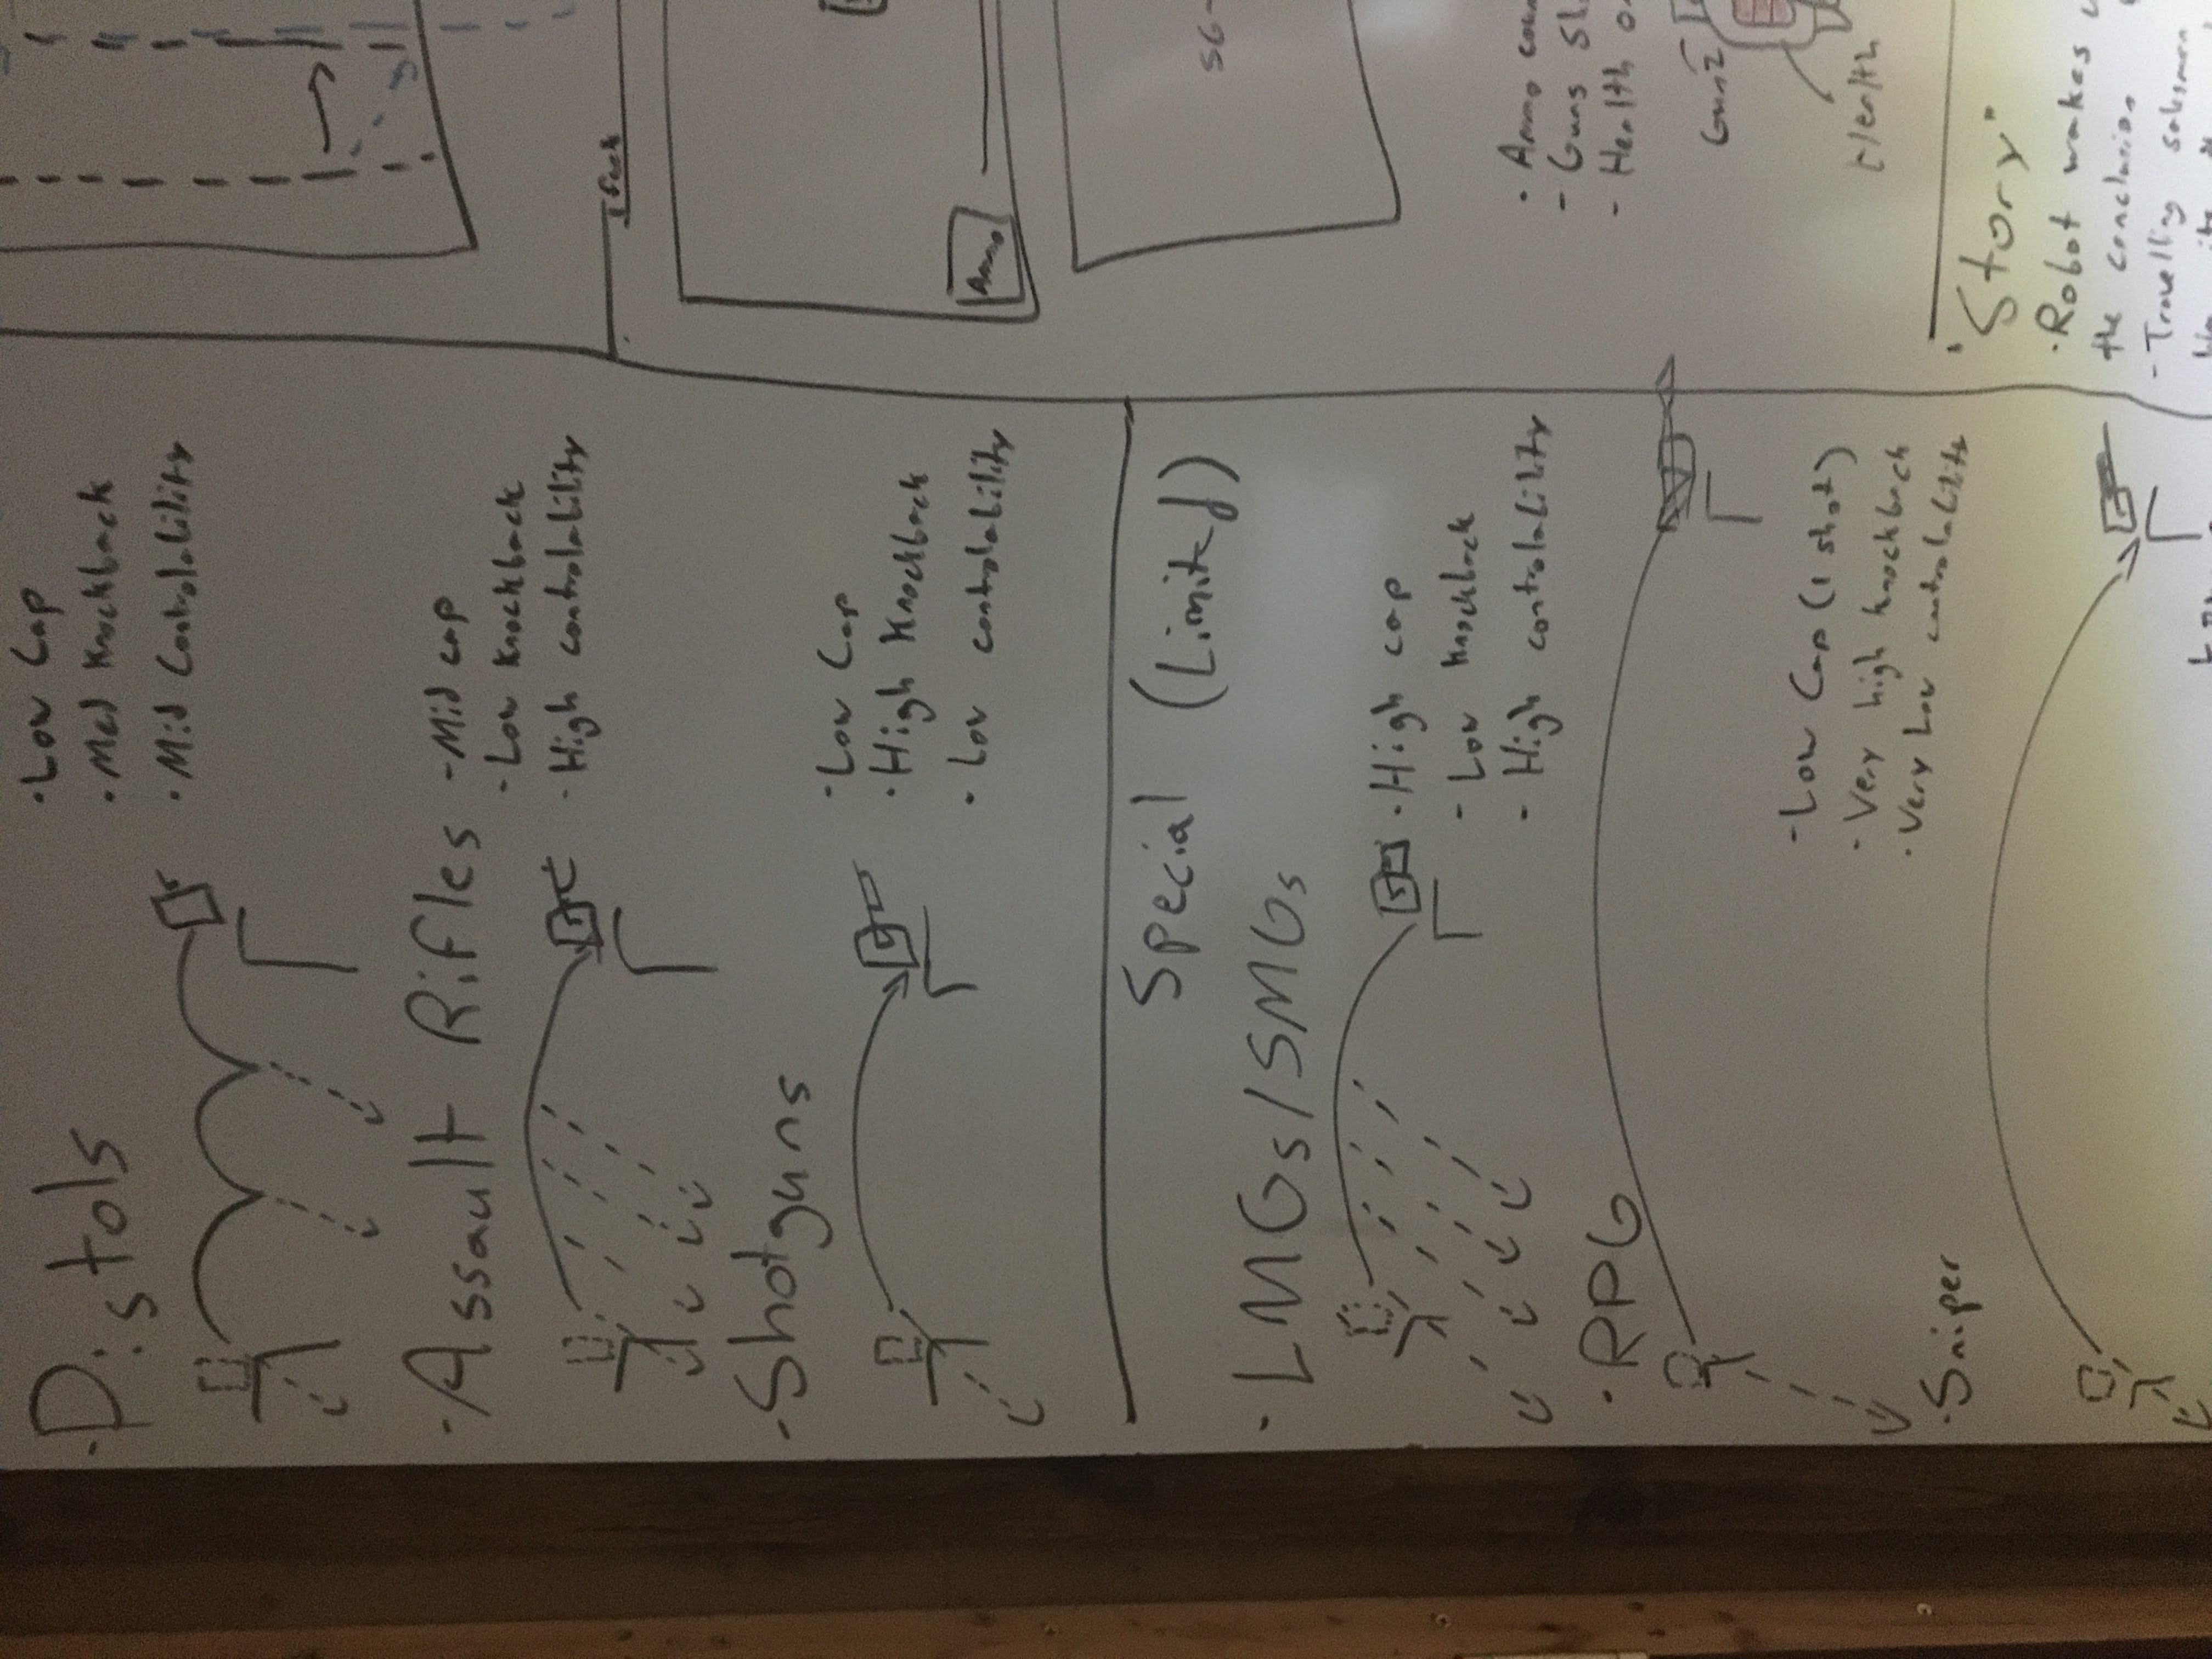 · Pistols
· Low Cap
· Med Knockback
· Mid Controlability
· Assault Rifles
- Mid cap
- Low Knockback
· High controlability
- Shotguns
- Low Cap
· High Knockback
· Low controlability
Special (Limited)
· LMGs/SMGs
· High cap
- Low Knockback
- High controlability
· RPG
- Low Cap (1 shot)
- Very high knockback
· Very Low controlability
· Sniper
Ammo
SG-
· Ammo
- Guns
- Health
Gun2
Health
"Story"
· Robot wakes
the conclusion
- Travelling salesman